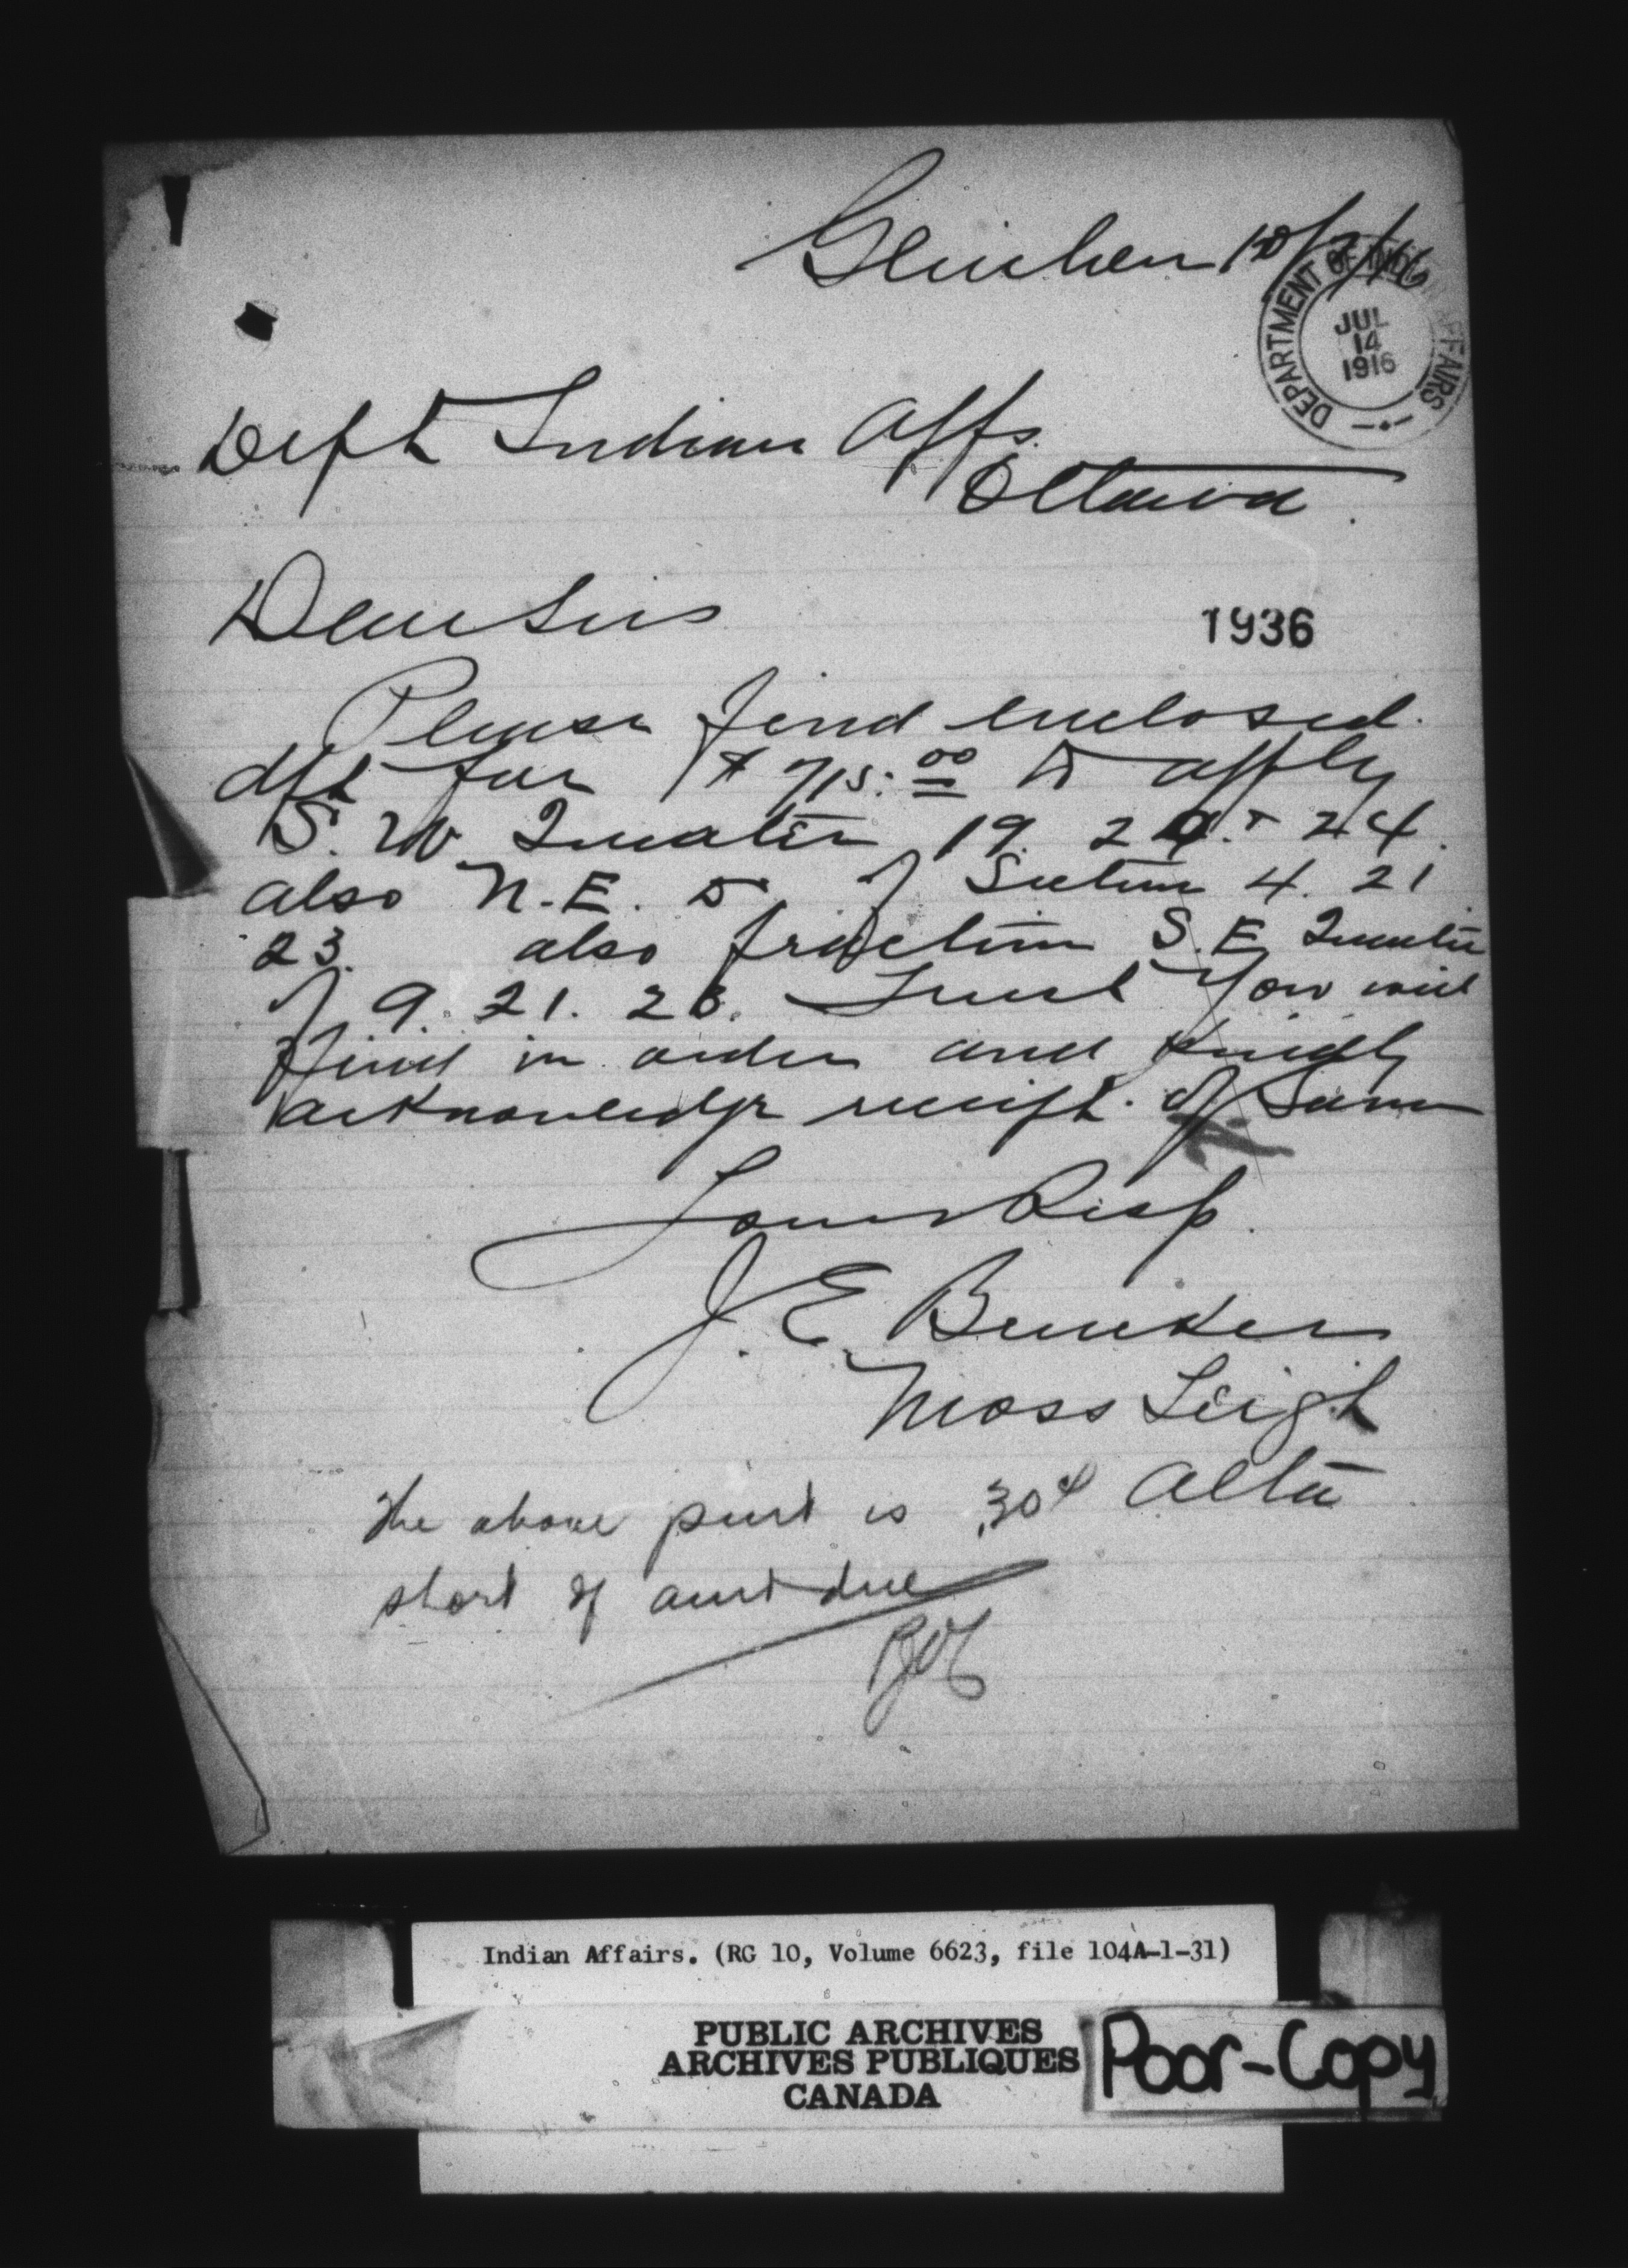 Gleichen 10/7/16
DEPARTMENT OF INDIAN AFFAIRS
JUL
14
1916
Dept Indian Affs.
Ottawa.
Dear Sirs
1936
Please find enclosed
dft for $715.00 to apply
S. W. Quarter 19. 20. 24.
also N.E. of Section 4. 21
23. also fraction S.E Quarter
of 9. 21. 23. Trust you will
find in order and kindly
acknowledge receipt of same
Yours Resp.
J. E. Bunker
Moss Leigh
Alta
The above pmt is .30¢
short of amt due
Indian Affairs. (RG 10, Volume 6623, file 104A-1-31)
PUBLIC ARCHIVES
ARCHIVES PUBLIQUES
CANADA
Poor-Copy